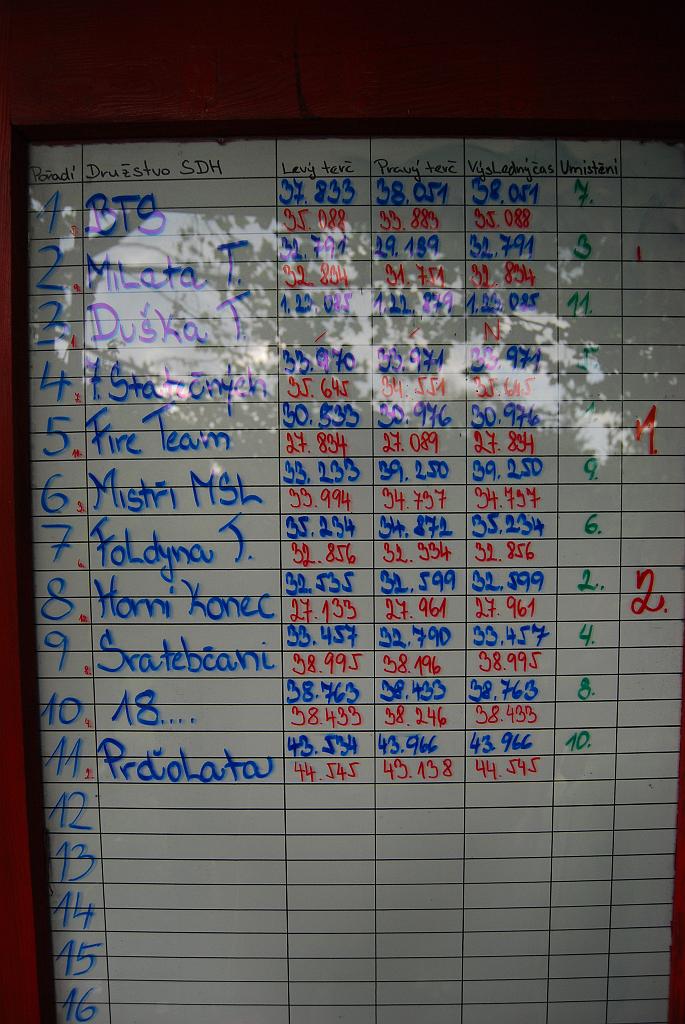 Pořadí Družstvo SDH Levý terč Pravý terč Výsledný čas Umístění
1. BTS 37.833 38.051 38.051 7.
35.088 33.883 35.088
2. Milata T. 32.791 29.139 32.791 3
32.834 31.751 32.834
3. Duška T. 1.23.085 1.22.879 1.23.085 11.
N
4. 7 Statečných 33.970 33.971 33.971
35.645 34.551 35.645
5. Fire Team 30.533 30.976 30.976 1
27.834 27.089 27.834 1.
6. Mistři MSL 33.233 39.250 39.250 9.
33.994 34.737 34.737
7. Foldyna T. 35.234 34.872 35.234 6.
32.856 32.334 32.856
8. Horní Konec 32.535 32.599 32.599 2.
27.133 27.961 27.961 2.
9. Šratebčani 33.457 32.790 33.457 4.
38.995 38.196 38.995
10. 18.... 38.763 38.433 38.763 8.
38.433 38.246 38.433
11. Prďolata 43.534 43.966 43.966 10.
44.545 43.138 44.545
12
13
14
15
16